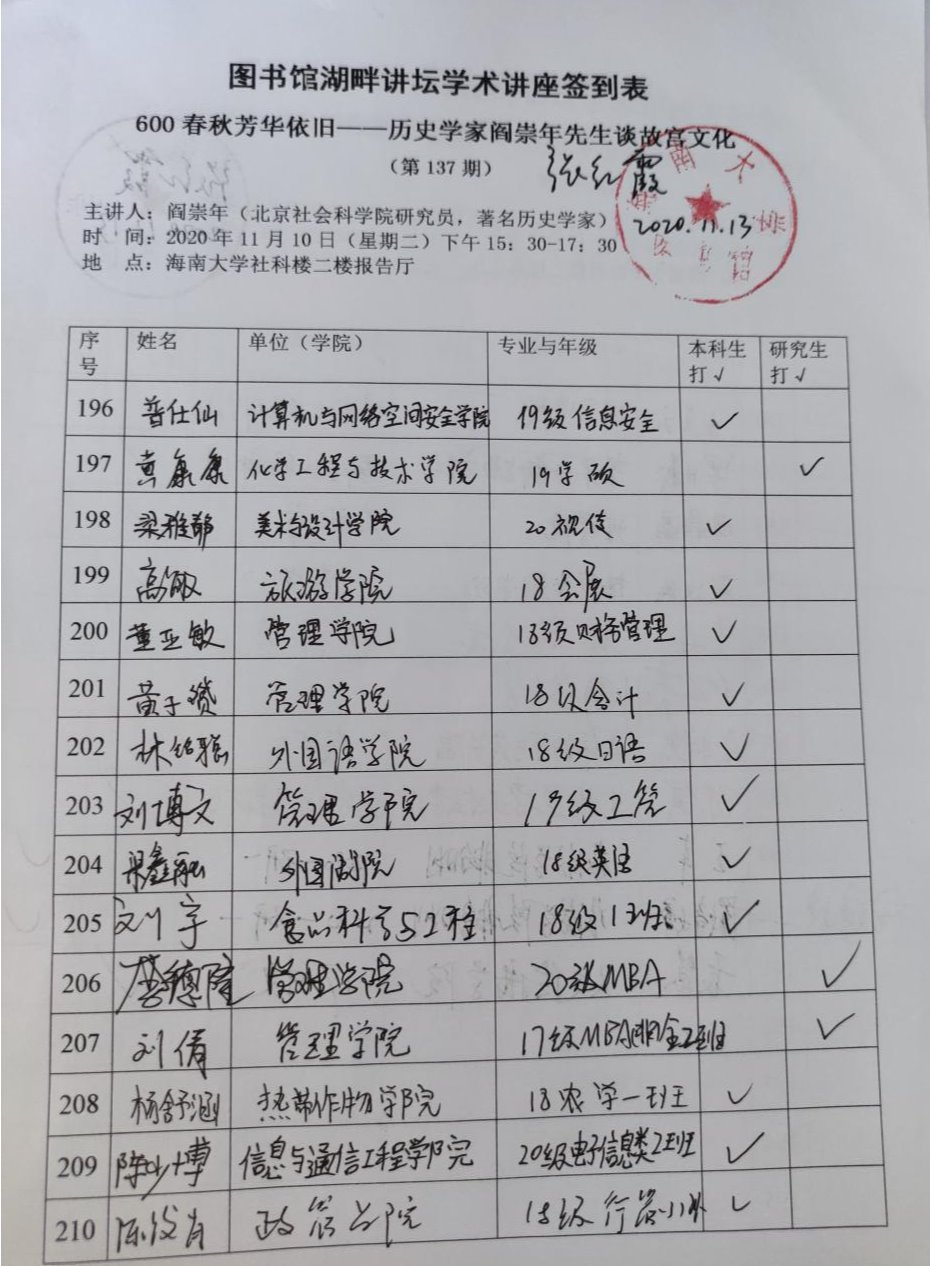 图书馆湖畔讲坛学术讲座签到表
600春秋芳华依旧——历史学家阎崇年先生谈故宫文化
（第137期） 张红霞
主讲人：阎崇年（北京社会科学院研究员，著名历史学家）
时 间：2020年11月10日（星期二）下午15：30-17：30 2020.11.13
地 点：海南大学社科楼二楼报告厅
序号 姓名 单位（学院） 专业与年级 本科生打√ 研究生打√
196 普仕仙 计算机与网络空间安全学院 19级信息安全 ✓
197 袁康康 化学工程与技术学院 19学硕 ✓
198 梁雅郁 美术与设计学院 20视传 ✓
199 高敏 旅游学院 18会展 ✓
200 董亚敏 管理学院 18级财务管理 ✓
201 黄子赟 管理学院 18级会计 ✓
202 林铭聪 外国语学院 18级日语 ✓
203 刘博文 管理学院 19级工管 ✓
204 梁鑫融 外国语学院 18级英语 ✓
205 刘宇 食品科学与工程 18级1班 ✓
206 李德隆 管理学院 20级MBA ✓
207 刘倩 管理学院 17级MBA ✓
208 杨舒涵 热带作物学院 18农学一班 ✓
209 陈少博 信息与通信工程学院 20级电子信息类2班 ✓
210 政管学院 18级行管 ✓